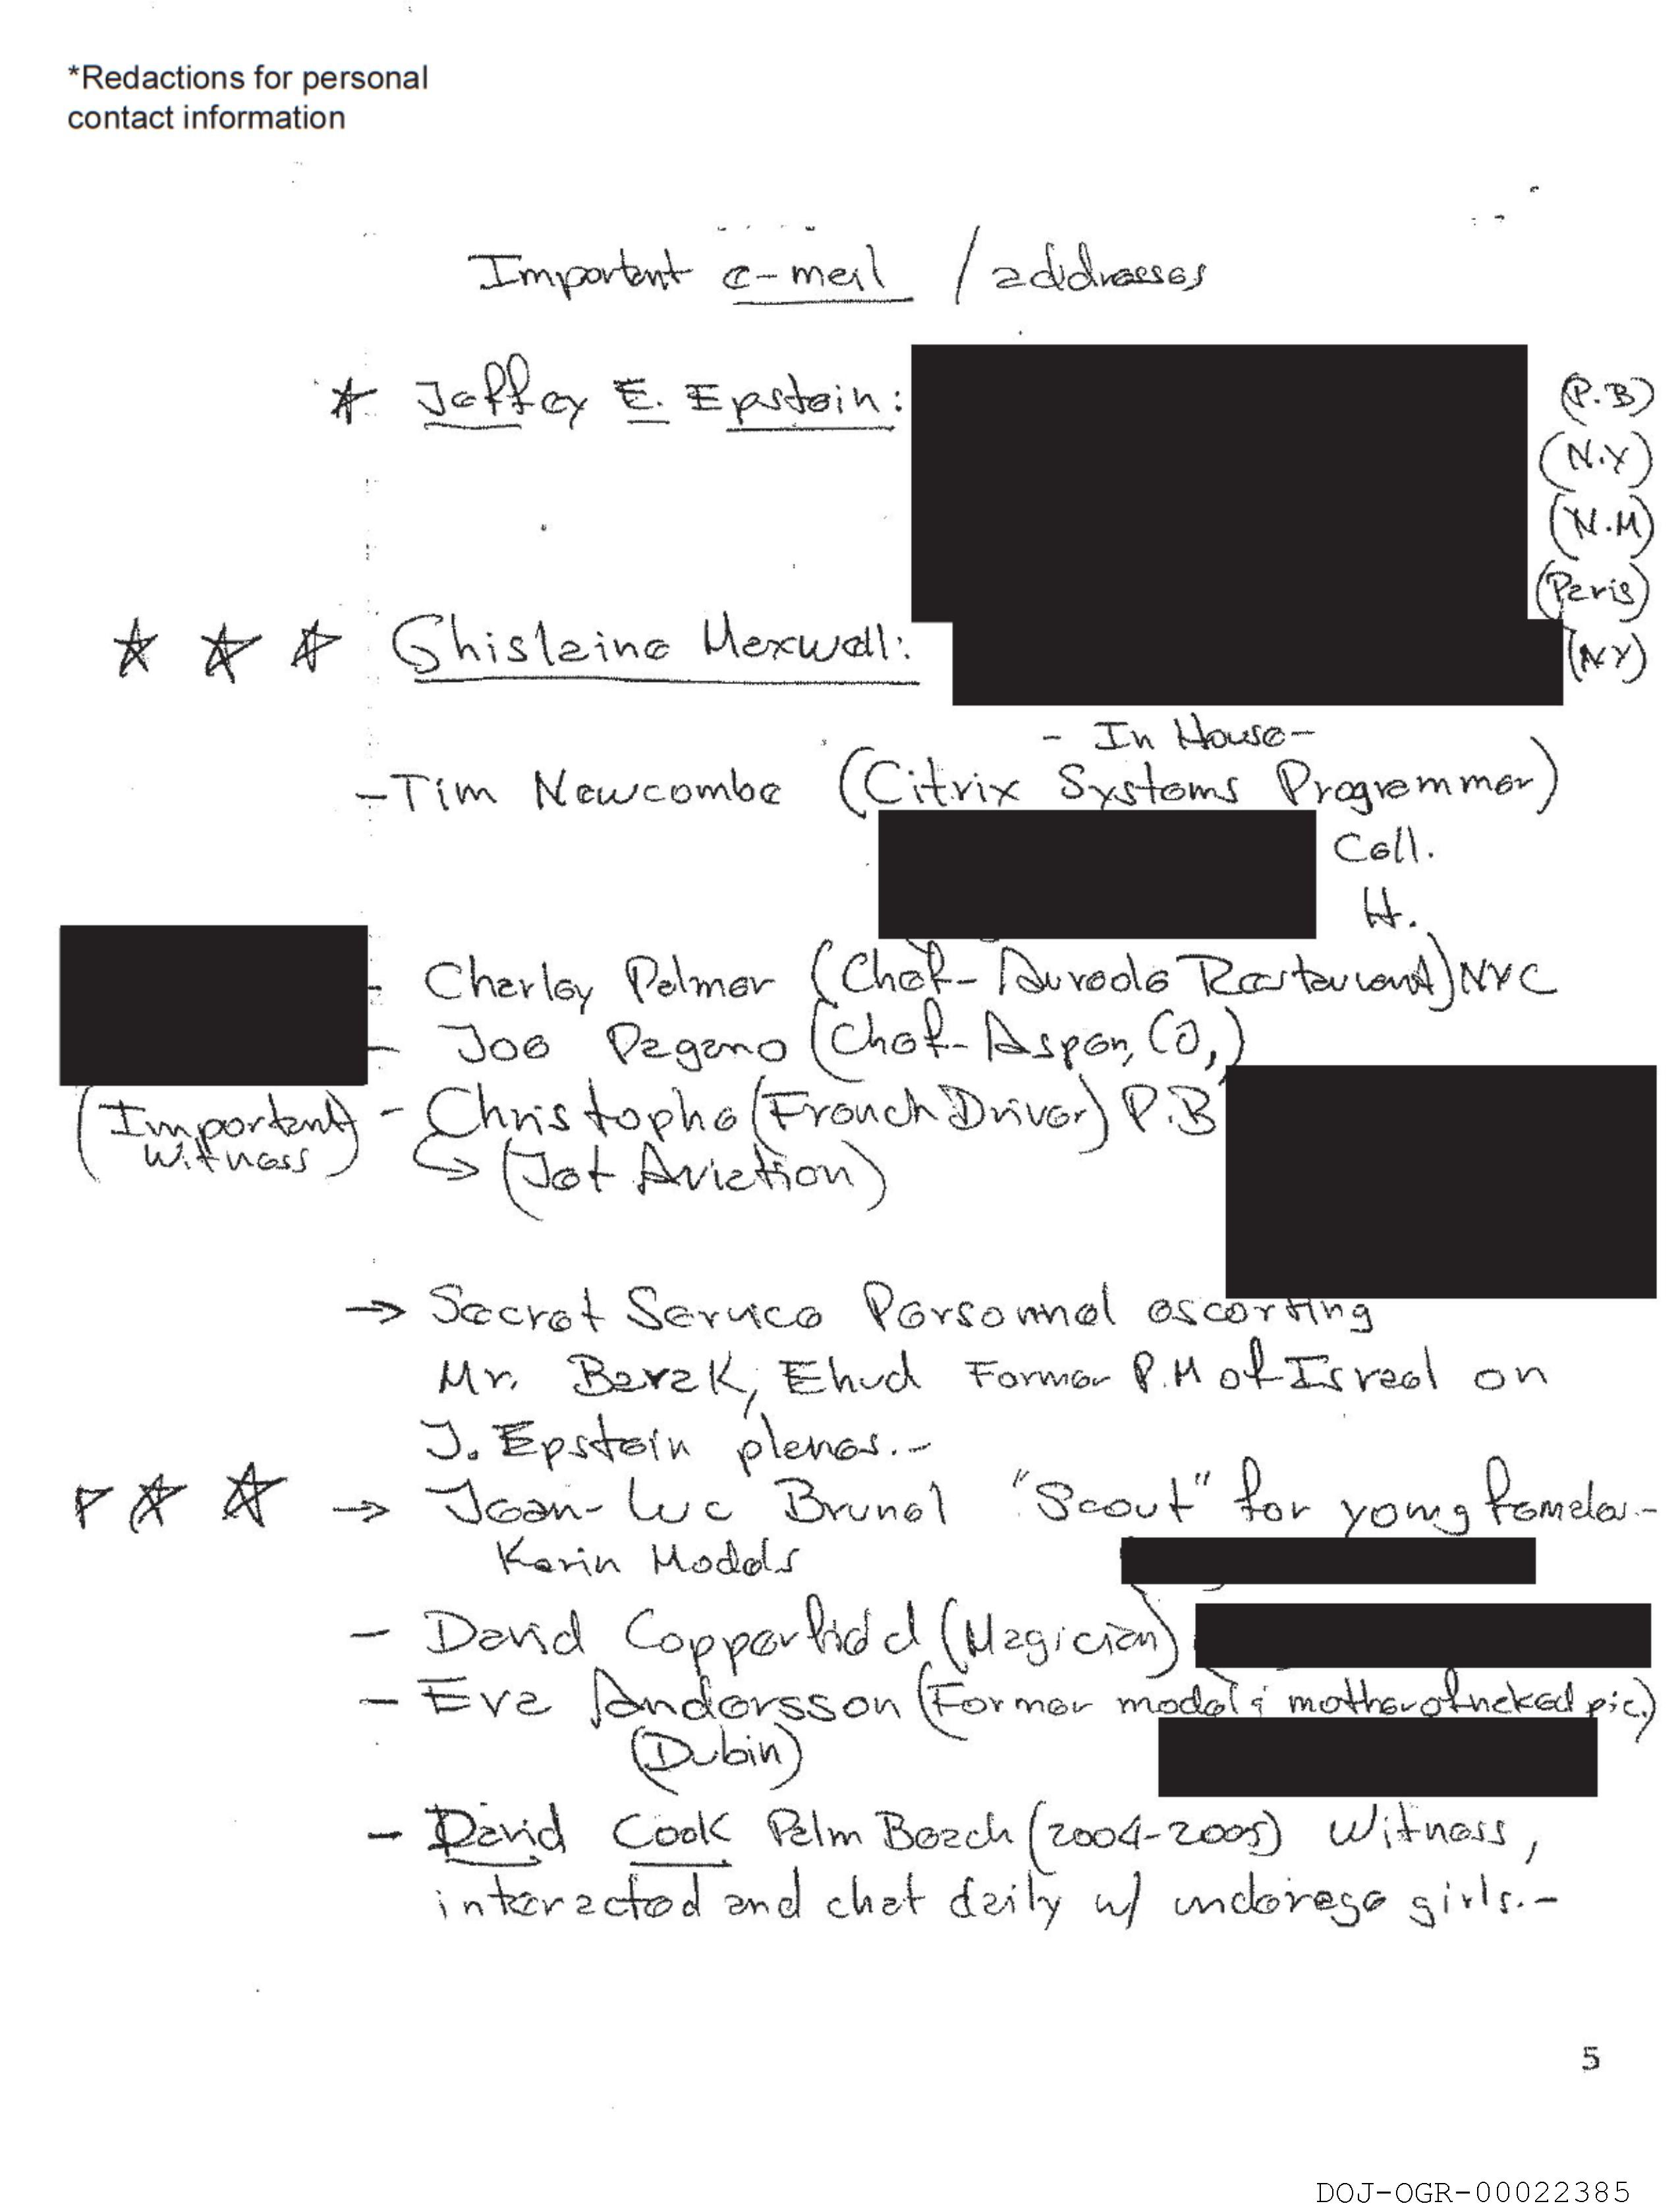 *Redactions for personal
contact information
Important e-mail / addresses
Jeffey E. Epstein: (P.B)
(N.Y)
(N.M)
(Paris)
Ghislaine Maxwell: (NY)
- In House-
-Tim Newcombe (Citrix Systems Programmer)
Cell.
H.
- Charley Palmer (Chef- Aureole Restaurant) NYC
- Joe Pagano (Chef- Aspen, CO,)
(Important Witness) - Christophe (French Driver) P.B
(Jet Aviation)
→ Secret Service Personnel escorting
Mr. Barak, Ehud Former P.M of Israel on
J. Epstein planes.-
→ Jean-Luc Brunel "Scout" for young females.-
Karin Models
- David Copperfield (Magician)
- Eva Andersson (Former model & mother of naked pic.)
(Dubin)
- David Cook Palm Beach (2004-2005) Witness,
interacted and chat daily w/ underage girls.-
5
DOJ-OGR-00022385